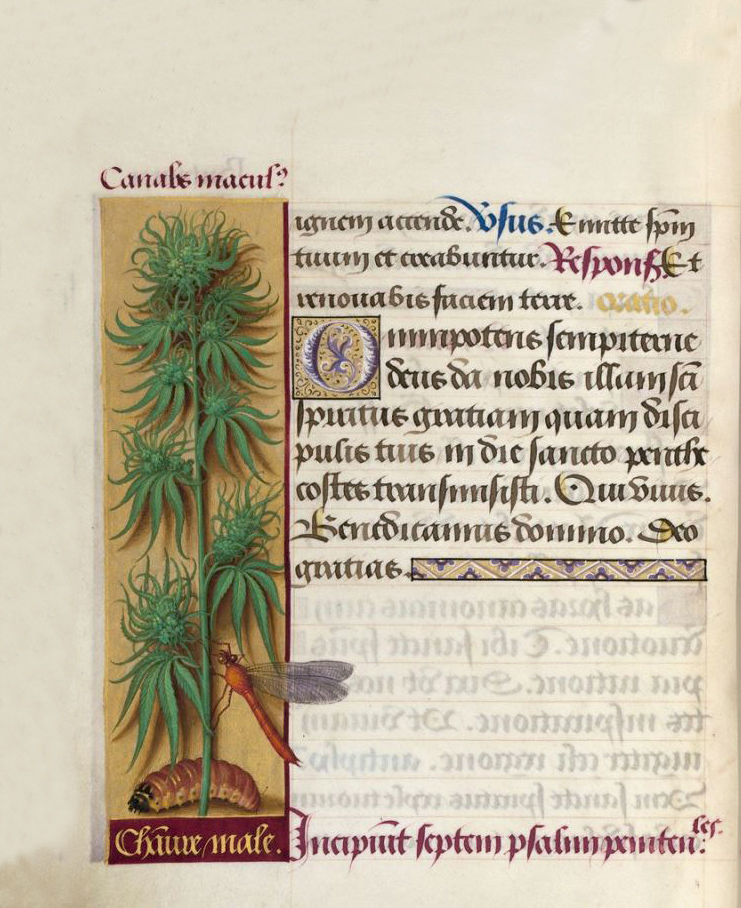 Canabs macul⁹
ignem accende. Vsus. Et mitte sp̄m
tuum et creabuntur. Respons. Et
renouabis faciem terre. oratio.
Omnipotens sempiterne
deus da nobis illam sc̄i
spiritus gratiam quam disci
pulis tuis in die sancto penthe
costes transmisisti. Qui viuis.
Benedicamus domino. Deo
gratias.
Chanve male.
Incipiūt septem psalmi peniten.les.